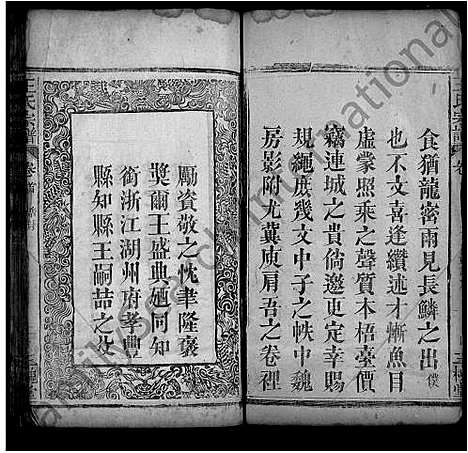 食猶龍嘗雨見長鱗之出僕
也不文喜逢纘述才慚魚目
虛蒙照乘之聲質木梧臺價
竊連城之貴倘邀更定幸賜
規繩庶幾文中子之帙中魏
房影附尤冀庾肩吾之卷裡
勵資敬之忱聿隆褒
獎爾王盛典廼同知
銜浙江湖州府孝豐
縣知縣王嗣喆之父
王氏宗譜
卷首
王氏宗譜
卷
三槐堂
familysearch international